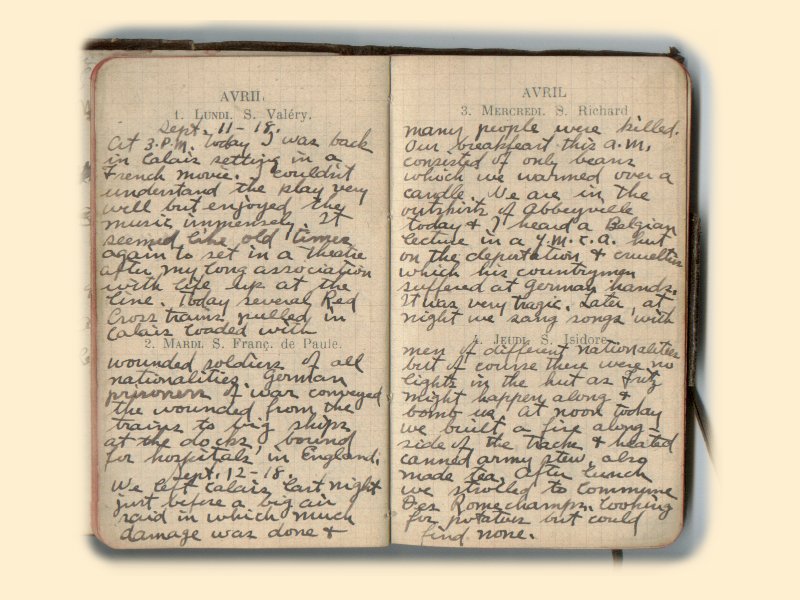 AVRIL
1. LUNDI. S. Valéry.
Sept. 11-18.
At 3.P.M. today I was back
in Calais setting in a
French movie. I couldn't
understand the play very
well but enjoyed the
music immensely. It
seemed like old times
again to set in a theatre
after my long association
with life up at the
line. Today several Red
Cross trains pulled in
Calais loaded with
2. MARDI. S. Franç. de Paule.
wounded soldiers of all
nationalities. German
prisoners of war conveyed
the wounded from the
trains to big ships
at the docks, bound
for hospitals in England.
Sept. 12-18.
We left Calais last night
just before a big air
raid in which much
damage was done &
AVRIL
3. MERCREDI. S. Richard
many people were killed.
Our breakfast this a.m.
consisted of only beans
which we warmed over a
candle. We are in the
outskirts of Abbeyville
today & I heard a Belgian
lecture in a Y.M.C.A. hut
on the deportation & cruelties
which his countrymen
suffered at German hands.
It was very tragic. Later at
night we sang songs with
4. JEUDI. S. Isidore
men of different nationalities
but of course there were no
lights in the hut as Fritz
might happen along &
bomb us. At noon today
we built a fire along-
side of the track & heated
canned army stew, also
made tea. After lunch
we strolled to Commune
Des Romechamps looking
for potatoes but could
find none.